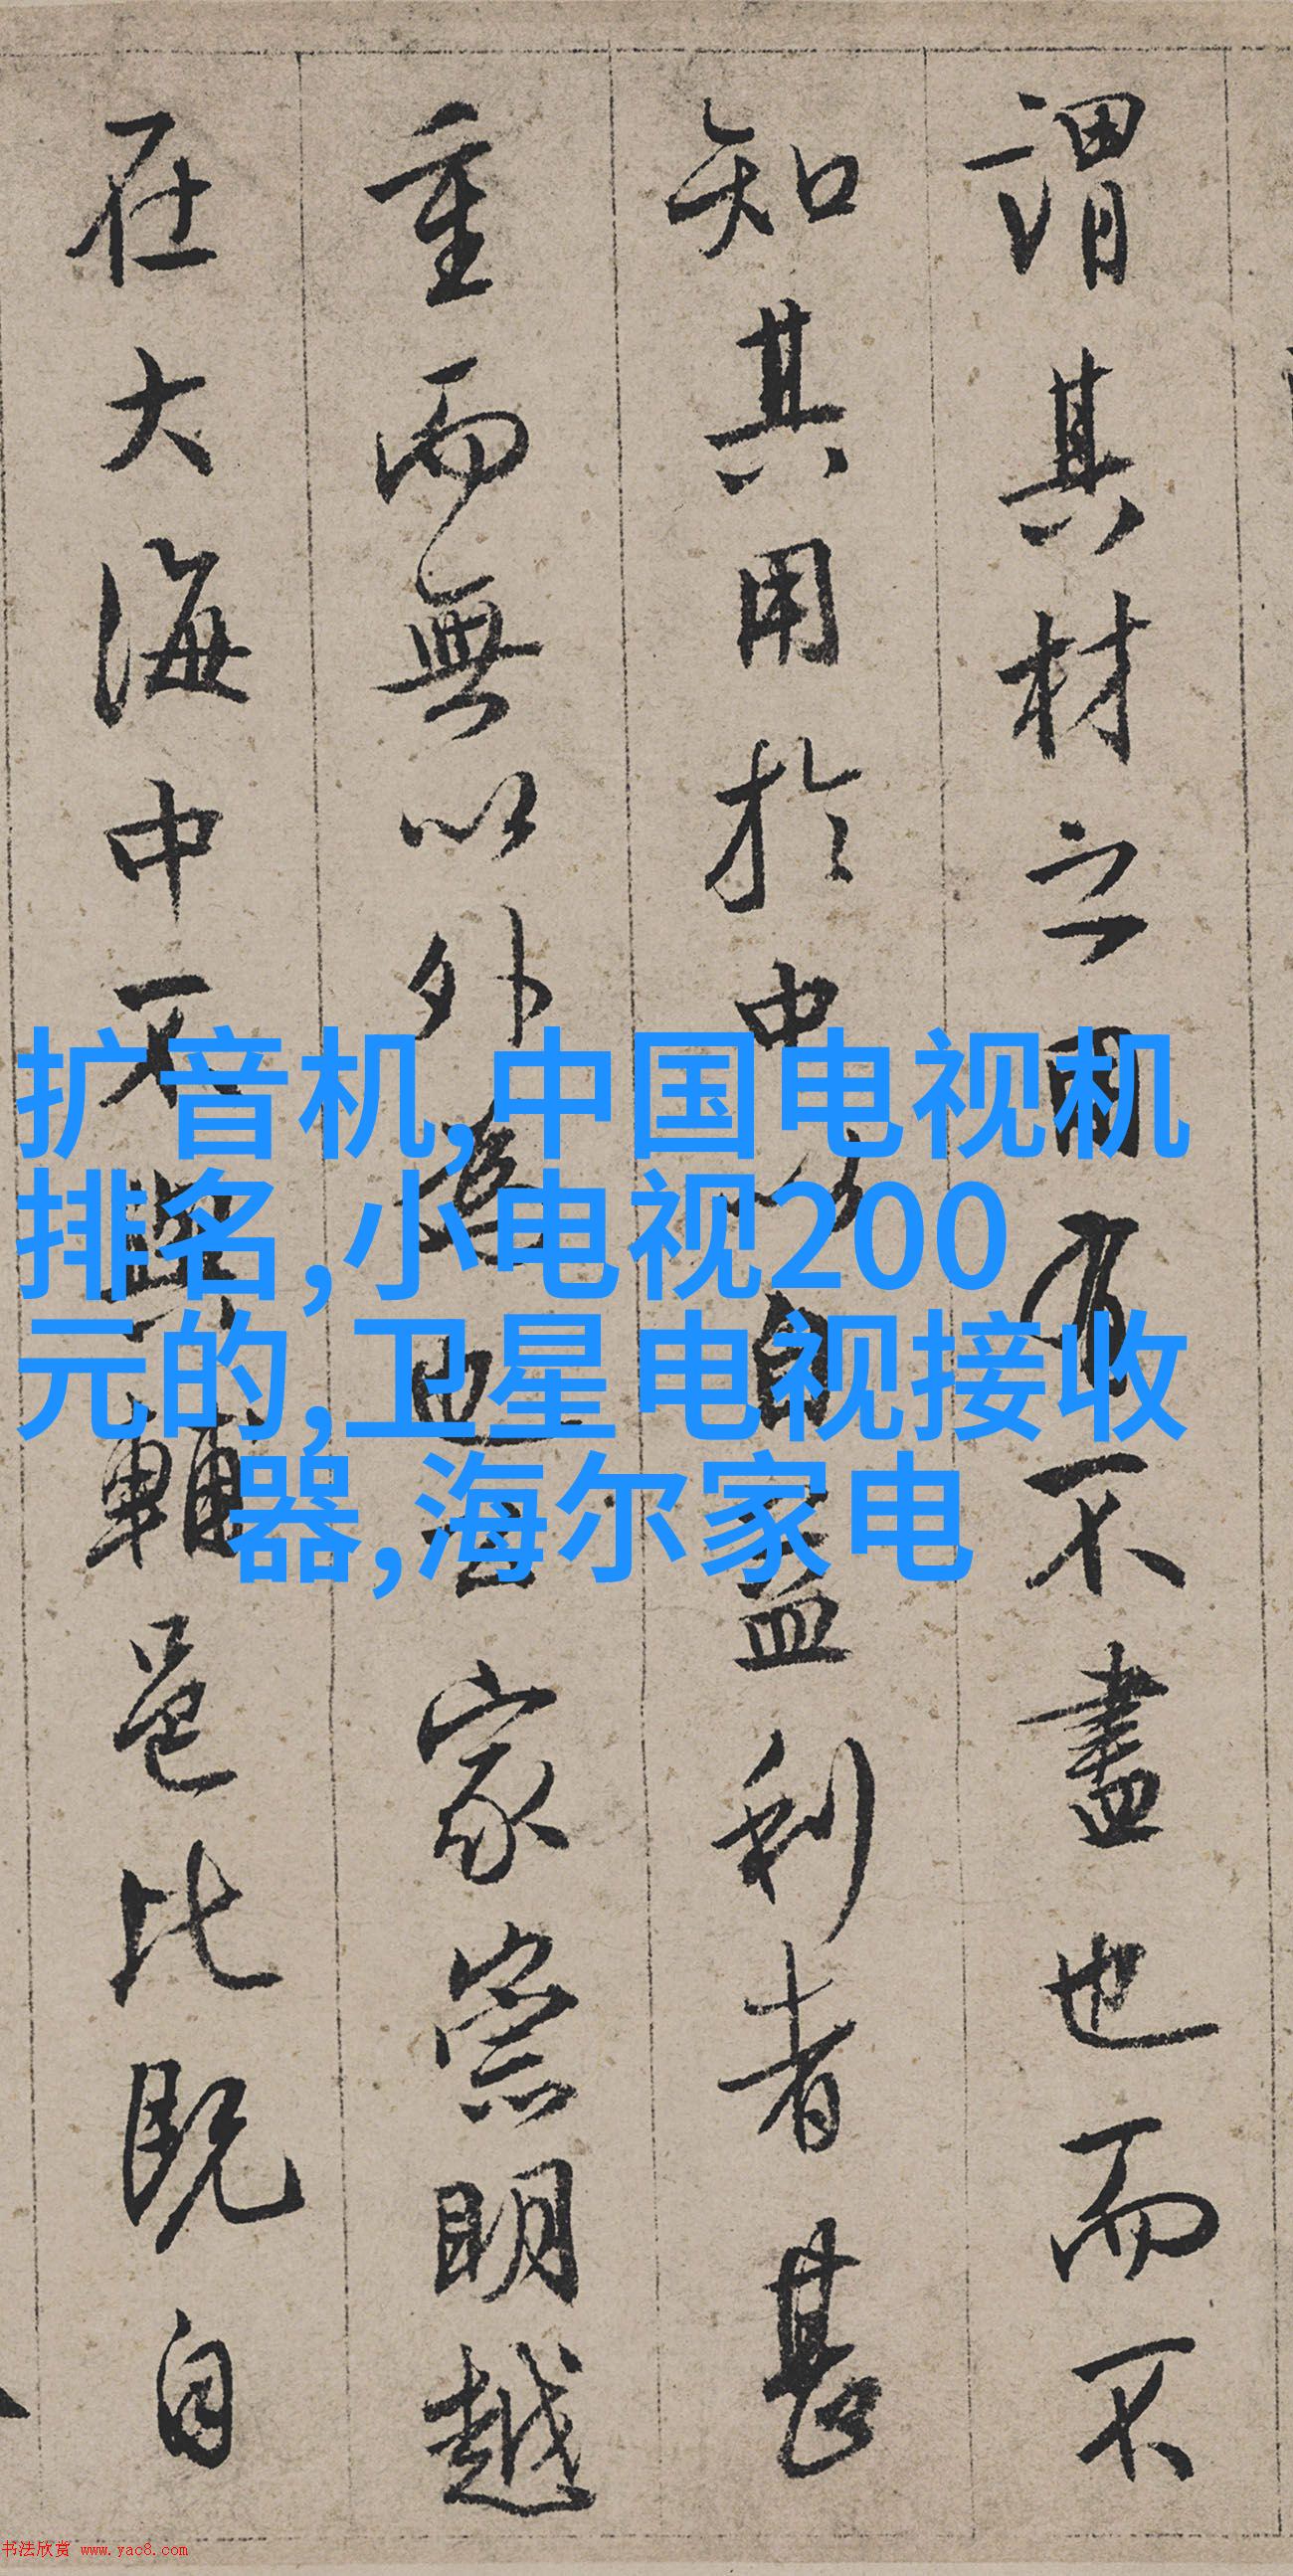 謂其材之用有不盡也而不
知其用於中以自益利者甚
重而無以外為也家崇明越
在大海中不與輔邑比既自
扩音机,中国电视机
排名,小电视200
元的,卫星电视接收
器,海尔家电
书法欣赏 www.yac8.com